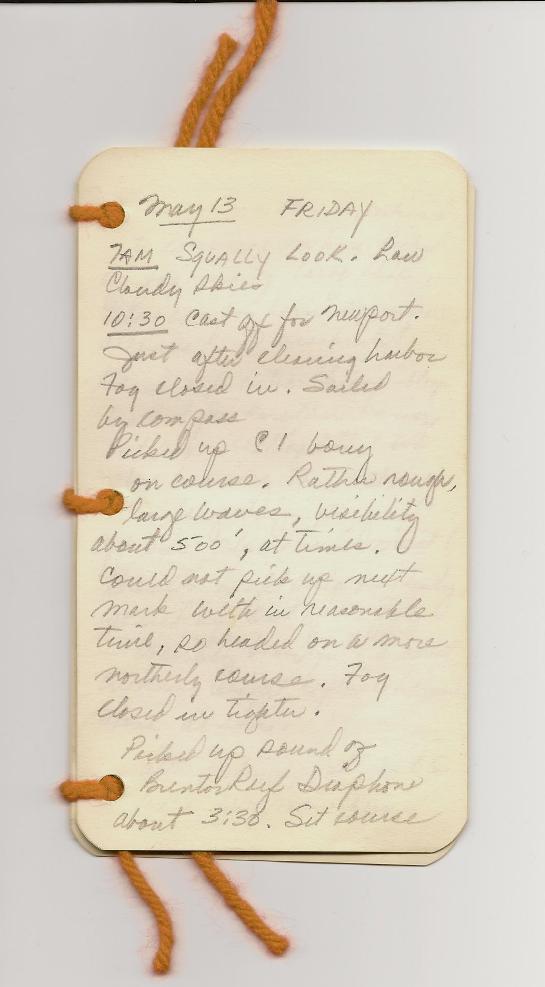 May 13 FRIDAY
7AM Squally Look. Low
Cloudy skies
10:30 Cast off for Newport.
Just after clearing harbor
Fog closed in. Sailed
by compass
Picked up C1 bouy
on course. Rather rough,
large waves, visibility
about 500', at times.
Could not pick up next
mark with in reasonable
time, so headed on a more
northerly course. Fog
closed in tighter.
Picked up sound of
Brenton Reef Diaphone
about 3:30. Set course